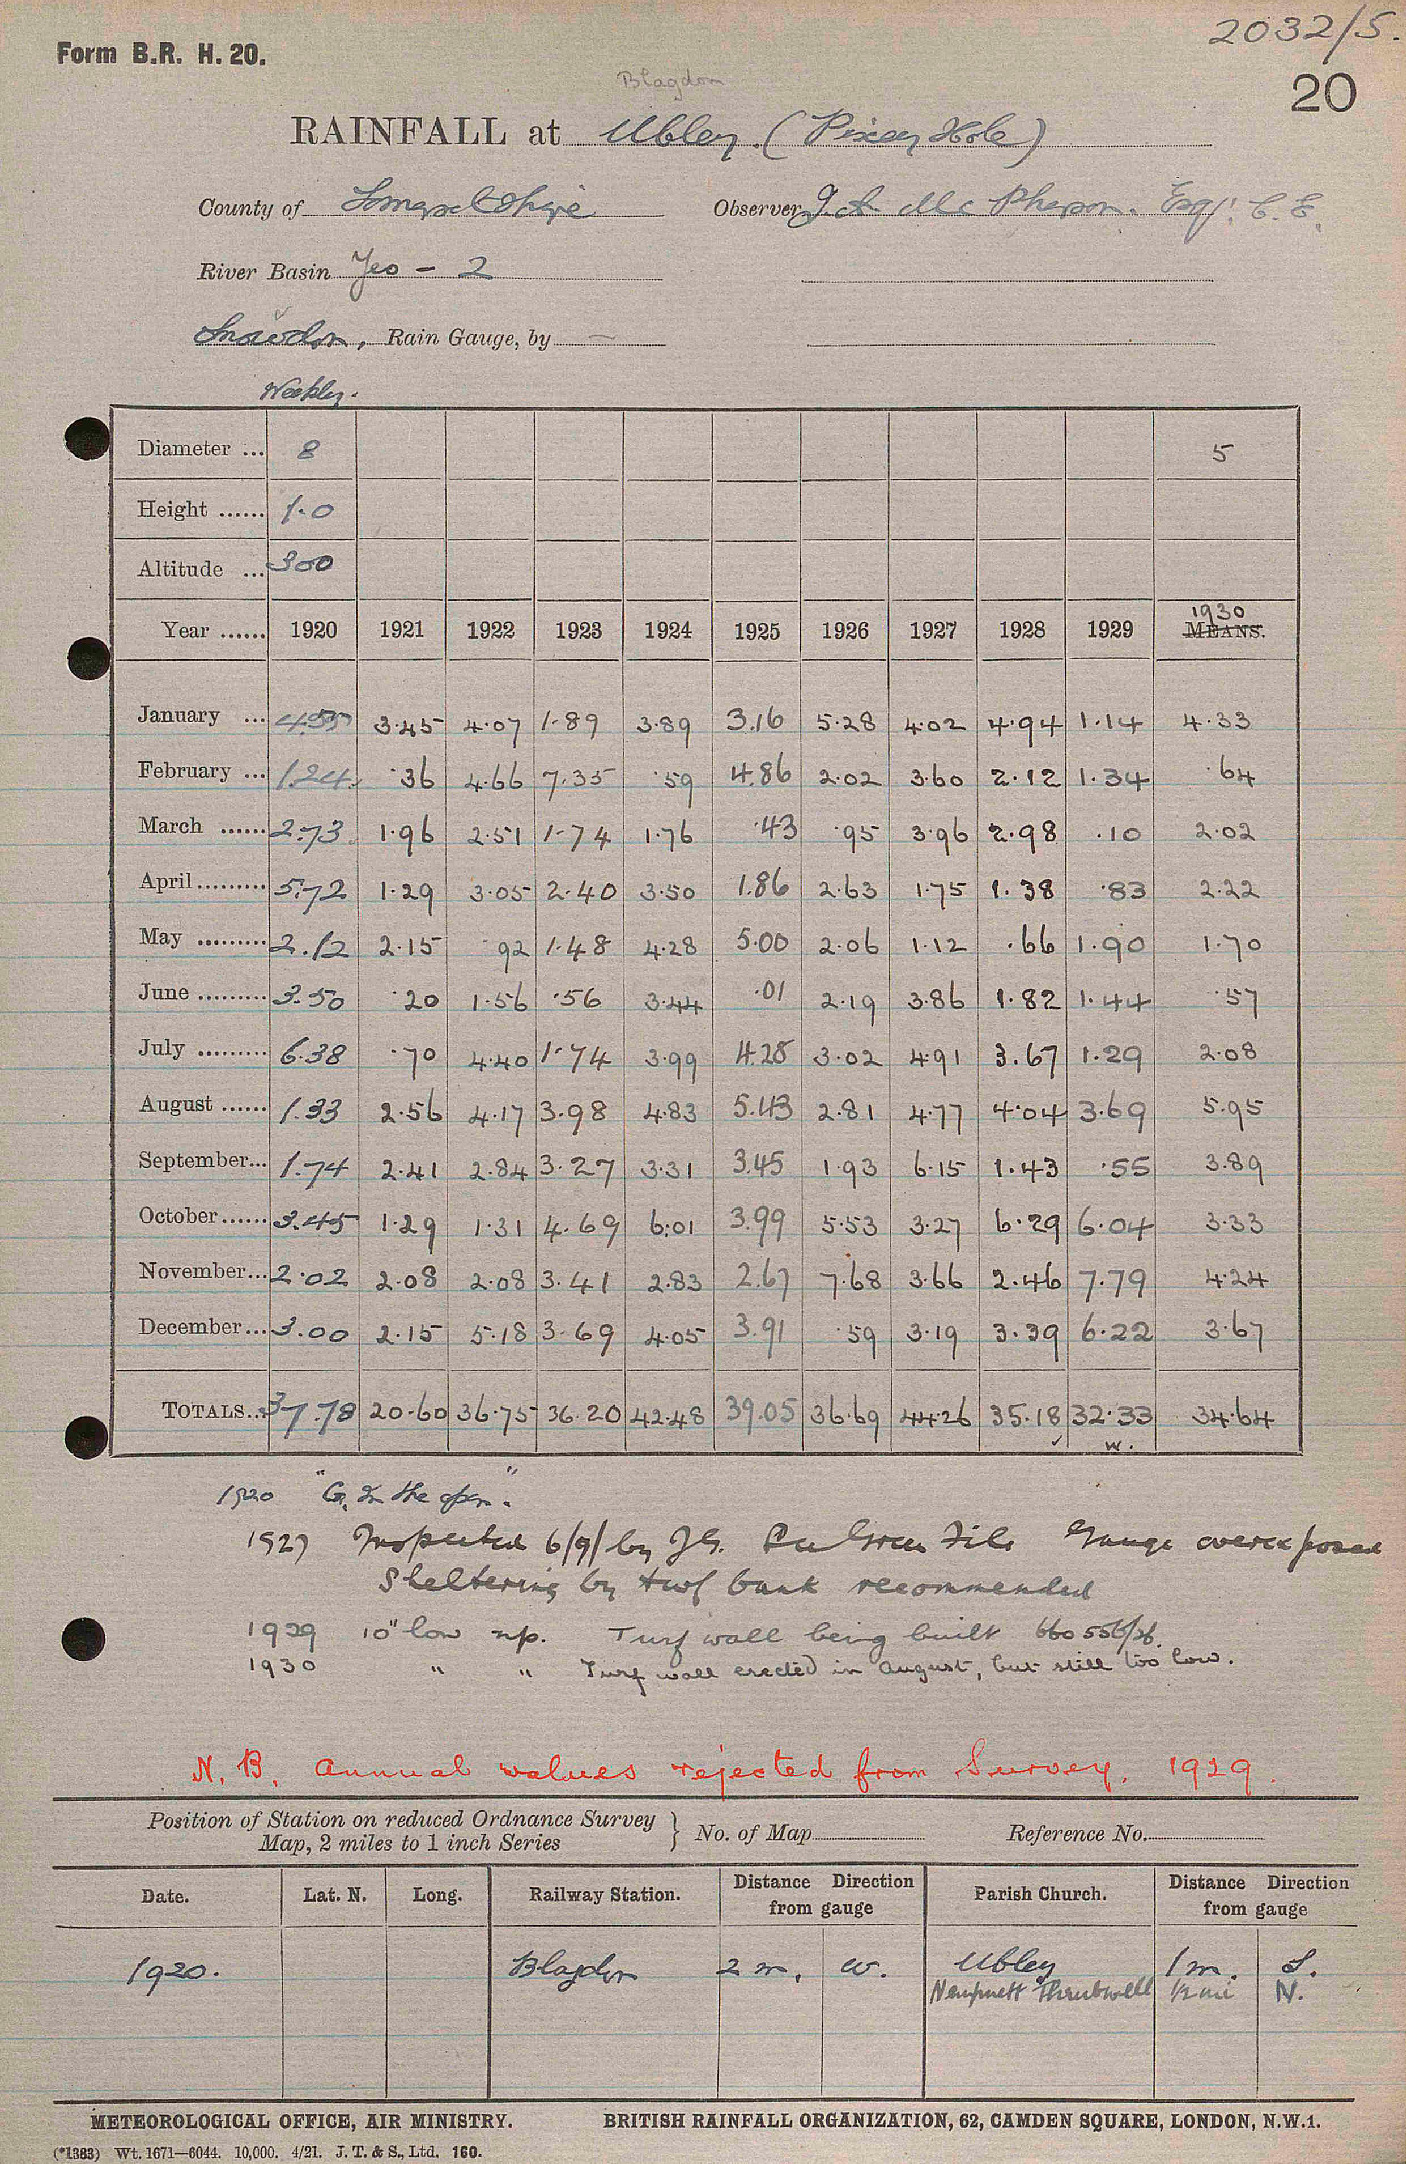 2032/5.
Form B.R. H. 20.
20
Blagdon
RAINFALL at Ubley (Pixey Hole)
County of Somersetshire Observer J. A. McPherson. Esqr. C. E.
River Basin Yeo - 2
Snowdon, Rain Gauge, by —
Weekly.
Diameter ... 8 5
Height ...... 1.0
Altitude ... 300
Year ...... 1920 1921 1922 1923 1924 1925 1926 1927 1928 1929 1930 MEANS.
January ... 4.55 3.45 4.07 1.89 3.89 3.16 5.28 4.02 4.94 1.14 4.33
February ... 1.24 .36 4.66 7.35 .59 4.86 2.02 3.60 2.12 1.34 .64
March ...... 2.73 1.96 2.51 1.74 1.76 .43 .95 3.96 2.98 .10 2.02
April ......... 5.72 1.29 3.05 2.40 3.50 1.86 2.63 1.75 1.38 .83 2.22
May ......... 2.12 2.15 .92 1.48 4.28 5.00 2.06 1.12 .66 1.90 1.70
June ......... 3.50 .20 1.56 .56 3.44 .01 2.19 3.86 1.82 1.44 .57
July ......... 6.38 .70 4.40 1.74 3.99 4.28 3.02 4.91 3.67 1.29 2.08
August ...... 1.33 2.56 4.17 3.98 4.83 5.43 2.81 4.77 4.04 3.69 5.95
September... 1.74 2.41 2.84 3.27 3.31 3.45 1.93 6.15 1.43 .55 3.89
October ...... 3.45 1.29 1.31 4.69 6.01 3.99 5.53 3.27 6.29 6.04 3.33
November... 2.02 2.08 2.08 3.41 2.83 2.67 7.68 3.66 2.46 7.79 4.24
December ... 3.00 2.15 5.18 3.69 4.05 3.91 .59 3.19 3.39 6.22 3.67
TOTALS... 37.78 20.60 36.75 36.20 42.48 39.05 36.69 44.26 35.18 32.33 34.64
✓ w.
1920 "G. In the open".
1927 Inspected 6/9/ by J.G. See Green File Gauge overexposed
Sheltering by turf bank recommended
1929 10" low rip. Turf wall being built
1930 " " Turf wall erected in August, but still too low.
N. B. Annual values rejected from Survey. 1929.
Position of Station on reduced Ordnance Survey Map, 2 miles to 1 inch Series } No. of Map Reference No.
Date. Lat. N. Long. Railway Station. Distance Direction from gauge Parish Church. Distance Direction from gauge
1920. Blagdon 2 m. W. Ubley 1 m. S.
Nempnett Thrubwell ½ mi N.
METEOROLOGICAL OFFICE, AIR MINISTRY. BRITISH RAINFALL ORGANIZATION, 62, CAMDEN SQUARE, LONDON, N.W.1.
(*1383) Wt. 1671—6044. 10,000. 4/21. J. T. & S., Ltd. 160.